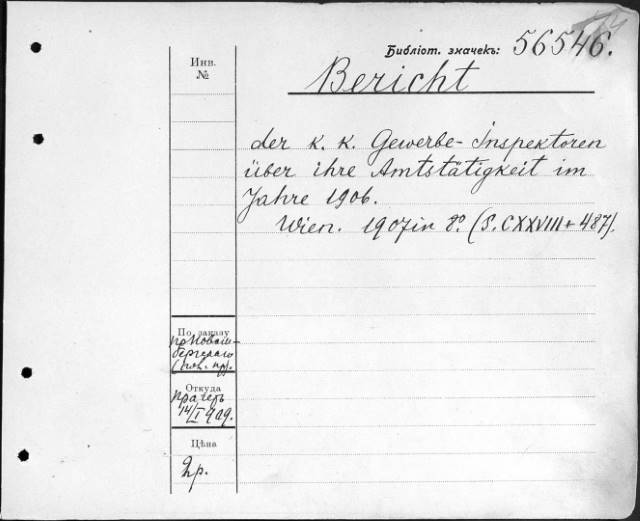 Библіот. значекъ: 56546.
Инв.
№
Bericht
der k. k. Gewerbe-Inspektoren
über ihre Amtstätigkeit im
Jahre 1906.
Wien. 1907 in 8º (S. CXXVIII + 487).
По заказу
Откуда
14/I 909.
Цѣна
2р.